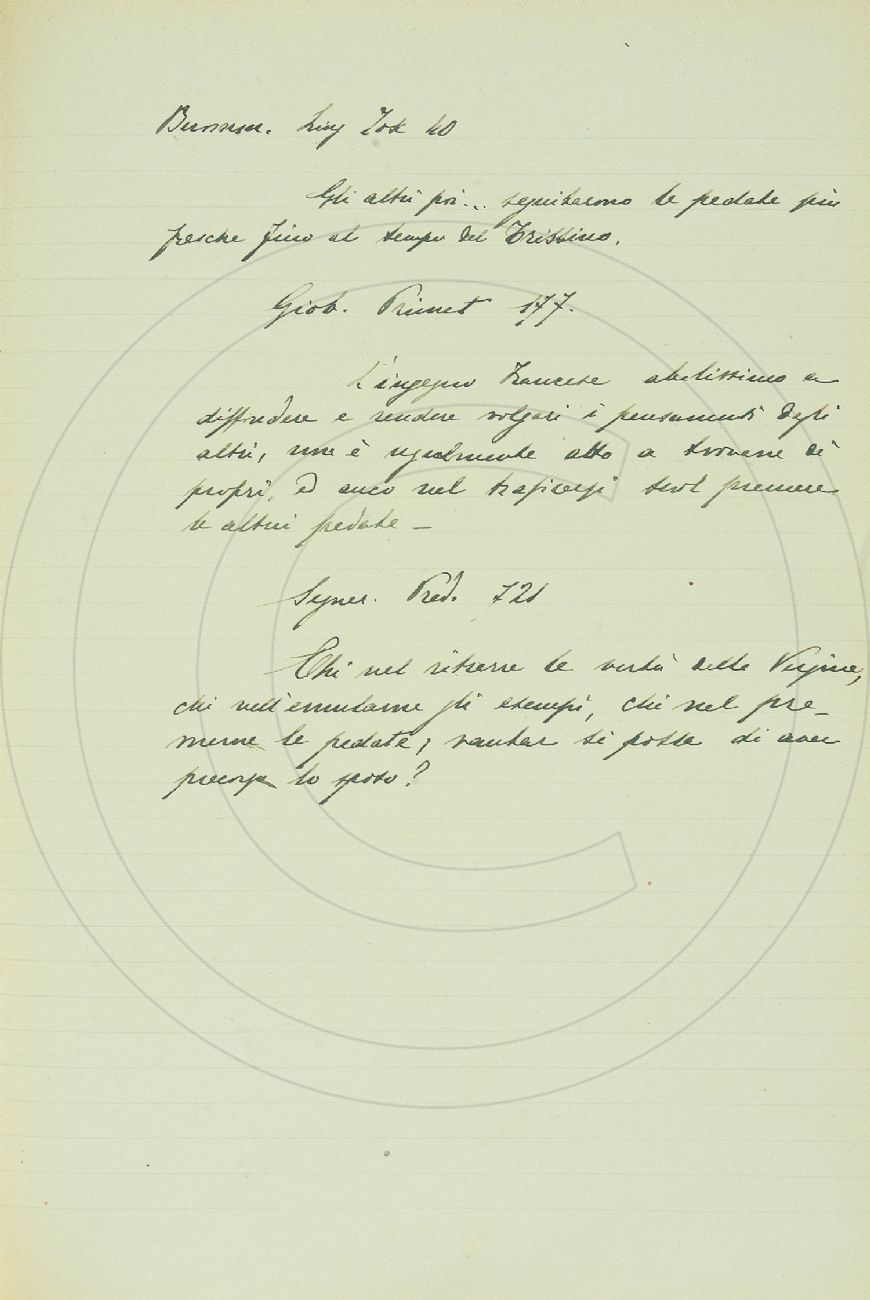 Buommat. Ling Tosc 40
Gli altri poi... seguitarono le pedate più
fresche fino al tempo del Trissino.
Giob. Primat 177.
L'ingegno francese abilissimo a
diffondere e rendere volgari i pensamenti degli
altri, non è ugualmente atto a trovarne di
propri, ed anco nel trafficarsi suol premere
le altrui pedate —
Segner. Pred. 721
Chi nel ritrarre le virtù della Vergine,
chi nell'emularne gli esempi, chi nel pre-
merne le pedate, vantar si possa di aver
precorso lo sposo?